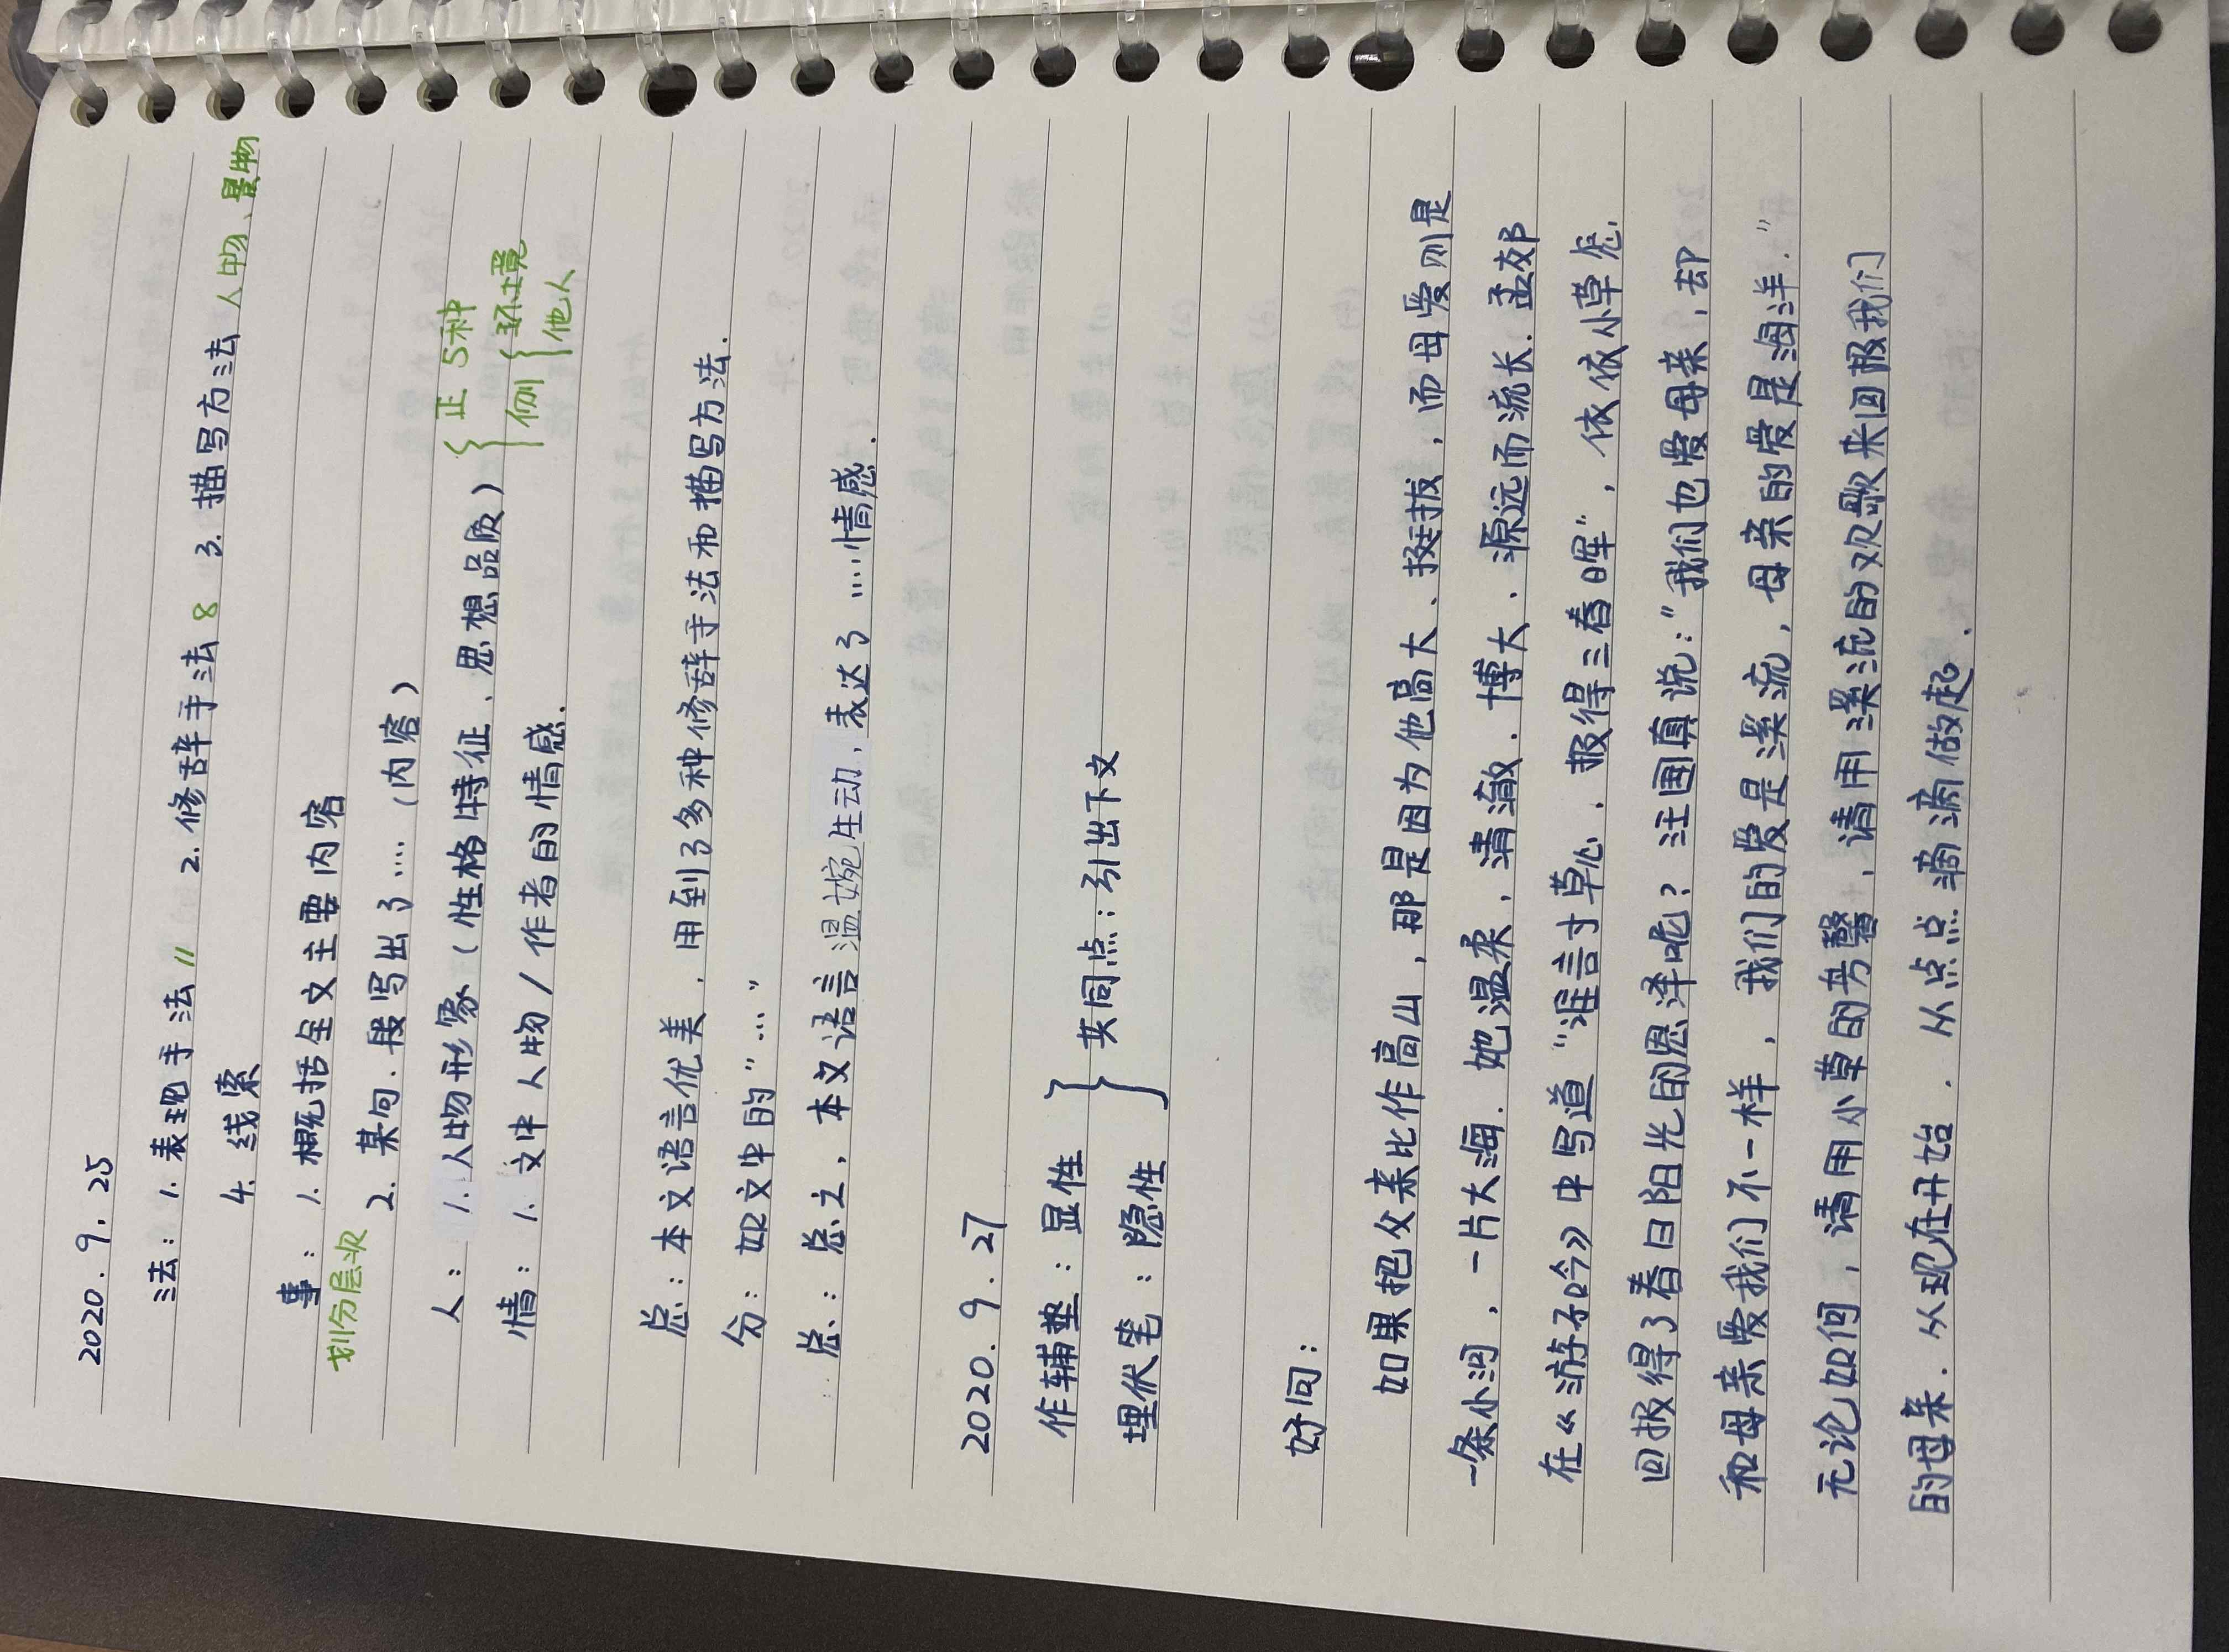 2020.9.25
法：1.表现手法 11 2.修辞手法 8 3.描写方法 人物、景物
4.线索
事：1.概括全文主要内容
划分层次 2.某句.段写出了....(内容)
人：1.人物形象(性格特征、思想品质) { 正 5种
侧 { 环境
他人
情：1.文中人物/作者的情感.
总：本文语言优美，用到了多种修辞手法和描写方法.
分：如文中的"...."
总：总之，本文语言温婉生动，表达了....情感.
2020.9.27
作辅垫：显性
埋伏笔：隐性 } 共同点：引出下文
好词：
如果把父亲比作高山，那是因为他高大、挺拔，而母爱则是
一条小河，一片大海.她温柔，清澈.博大.源远而流长.孟郊
在《游子吟》中写道"谁言寸草心.报得三春晖"，依依小草怎
回报得了春日阳光的恩泽呢？汪国真说："我们也爱母亲，却
和母亲爱我们不一样，我们的爱是溪流，母亲的爱是海洋."
无论如何，请用小草的芳馨，请用溪流的欢歌来回报我们
的母亲.从现在开始.从点点滴滴做起.